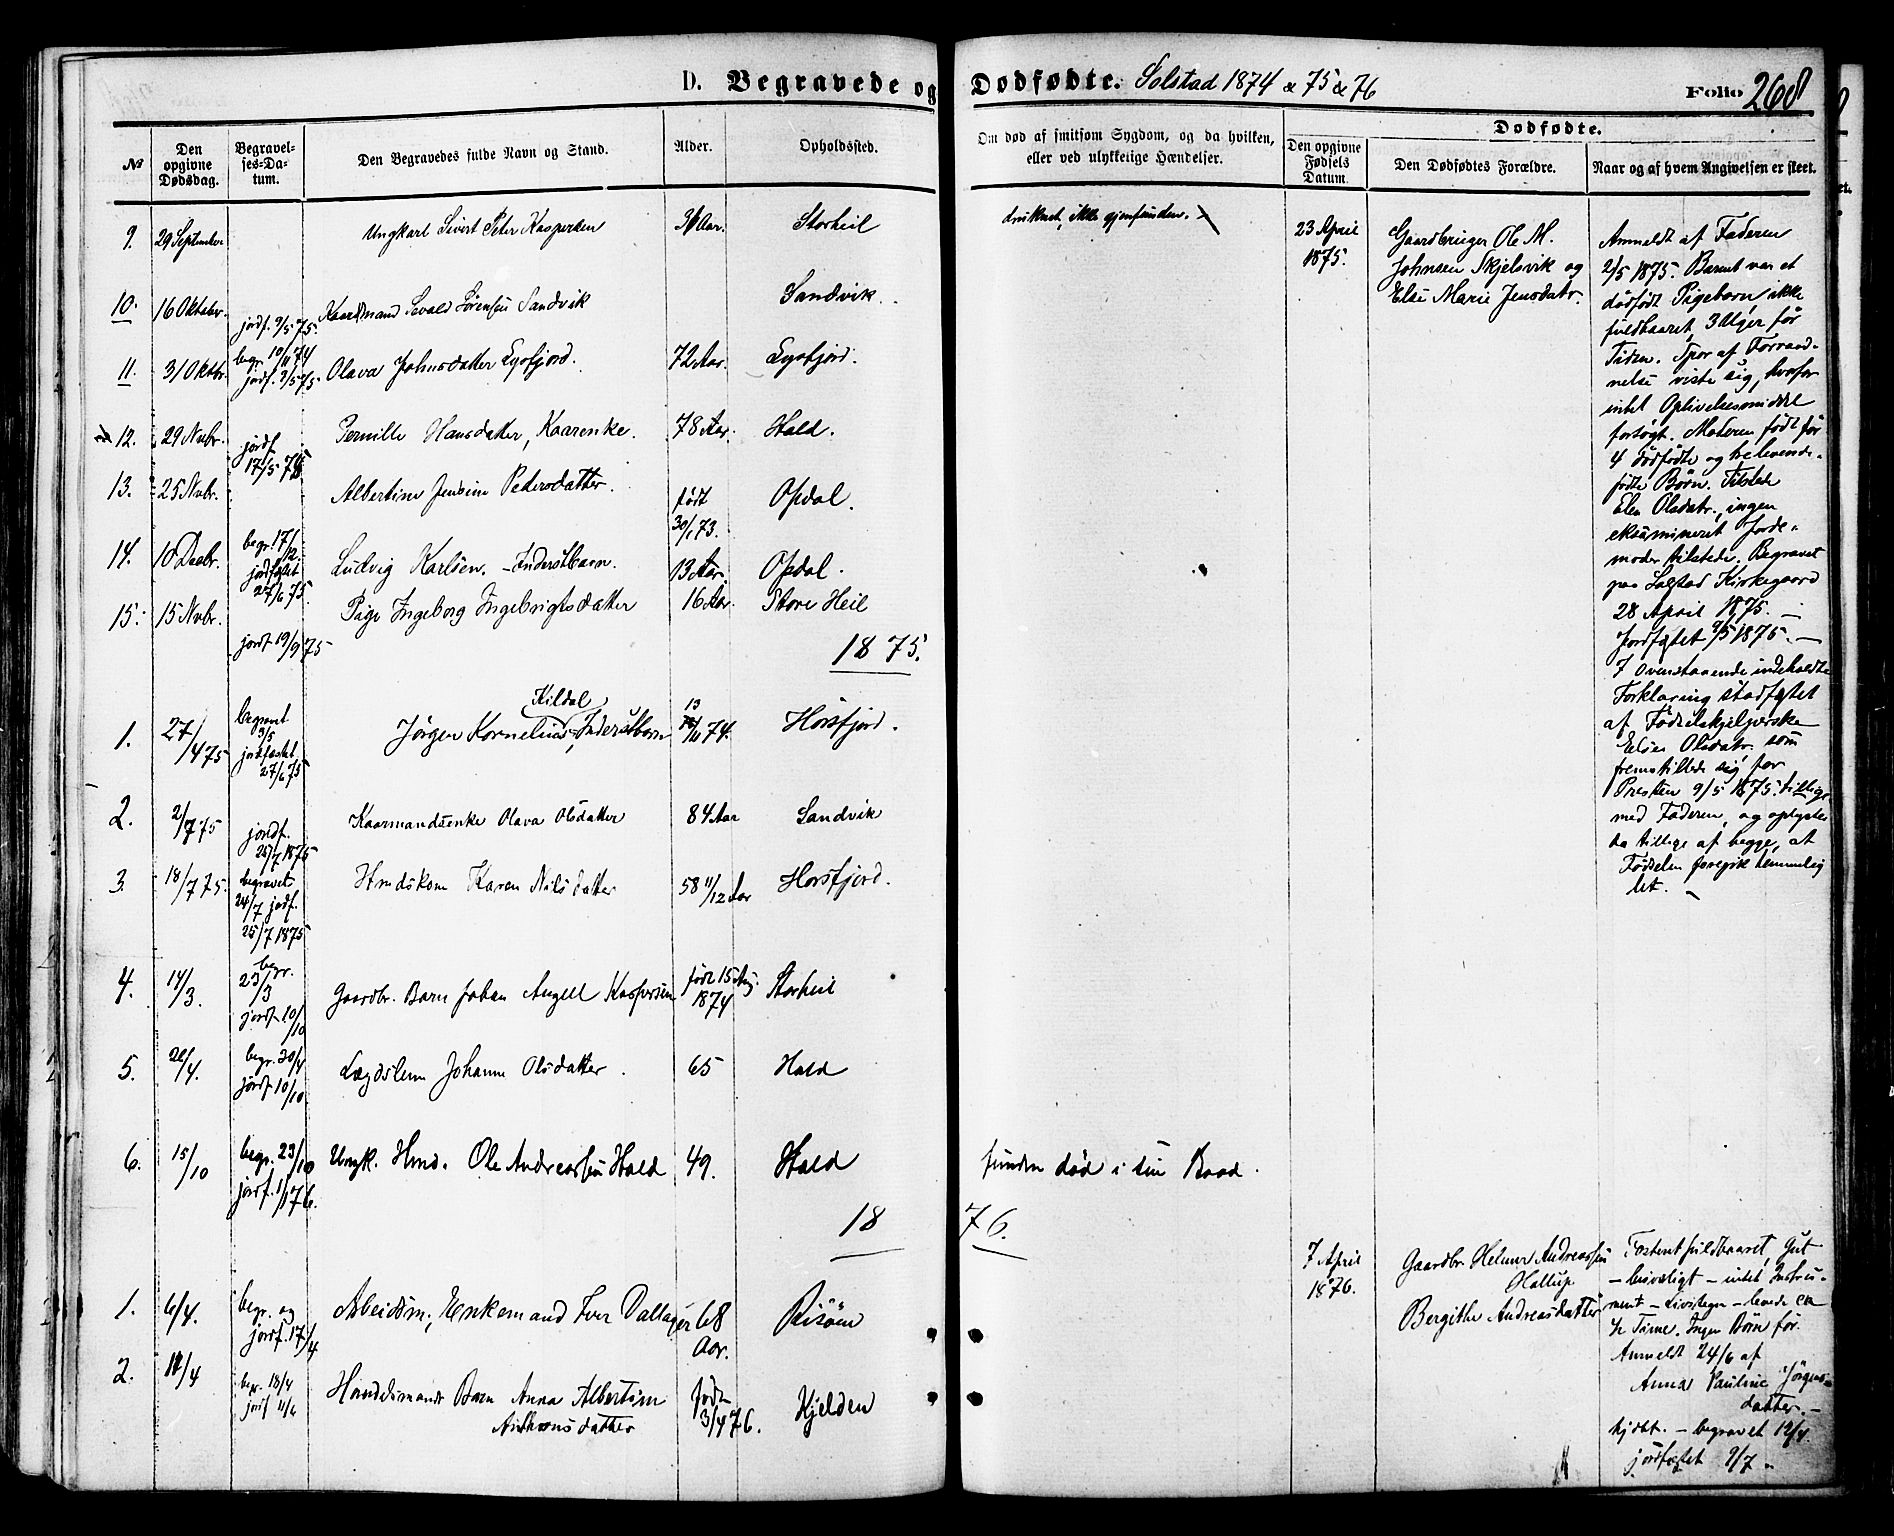 D. Begravede og Dødfødte. Solstad 1874 & 75 & 76
Folio 268
№
Den opgivne Dødsdag.
Begravelses-Datum.
Den Begravedes fulde Navn og Stand.
Alder.
Opholdssted.
Om død af smitsom Sygdom, og da hvilken, eller ved ulykkelige Hændelser.
Dødfødte.
Den opgivne Fødsels Datum.
Den Dødfødtes Forældre.
Naar og af hvem Angivelsen er skeet.
9. 29 September Ungkarl Sivert Peter Kaspersen Aar. Storheil druknet, ikke gjenfunden.
10. 16 Oktober. jordf. 9/5 75. Kaardmand Sevald Sørensen Sandvik Sandvik
11. 31 Oktbr. begr. 10/11 74 jordf. 9/5 75 Olava Johnsdatter Lysfjord. 72 Aar. Lysfjord.
12. 29 Novbr. jordf. 17/5 Pernille Hansdatter, Kaarenke. 78 Aar. Hald.
13. 25 Nvbr. Albertine Jensine Pedersdatter. født 30/1 73. Opdal.
14. 10 Decbr. begr. 17/12. jordfæstet 27/6 75. Ludvig Karlsen. - Inderstbarn. 13 Aar. Opdal.
15. 15 Nvbr. jordf 19/9 75 Pige Ingeborg Ingebrigtsdatter 16 Aar. Store Heil
1875.
1. 27/4 75 begravet 3/5 jordfæstet 27/6 75 Jørgen Kornelius Kildal, Inderstbarn 13/11 74. Horsfjord.
2. 2/7 75 jordf. 25/7 1875 Kaarmandsenke Olava Olsdatter 84 Aar Sandvik
3. 18/7 75. begravet 24/7 jordf. 25/7 1875 Hmdskone Karen Nilsdatter 58 11/12 Aar Horsfjord.
4. 14/3. begr. 23/3 jordf. 10/10 Gaardbr. Barn Johan Angell Kaspersen født 15 Aug. 1874 Storheil
5. 20/4. begr. 30/4 jordf 10/10 Lægdslem Johanna Olsdatter. 65 Hald
6. 15/10 begr. 23/10 jordf. 1/1 76. Ungk. Hmd. Ole Andreassen Hald 49. Hald funden død i sin Baad.
1876.
1. 6/4. begr. og jordf. 17/4 Arbeidsm., Enkemand Iver Dallager 68 Aar. Risøen
2. 12/4 begr. 18/4 jordf 11/6 Husmands Barn Anna Albertine Anthonsdatter født 3/4 76. Kjelden
23 April
1875.
Gaardbruger Ole M.
Johnsen Skjelsvik og
Else Marie Jensdatr.
Anmeldt af Faderen
2/5 1875. Barnet var et
dødfødt Pigebarn, ikke
fuldbaaret, 3 Uger før
Tiden. Spor af Forraad-
nelse viste sig, hvorfor
intet Oplivelsesmiddel
forsøgt. Moderen født før
4 dødfødte og tre levende-
fødte Børn. Tilstede
Elen Olsdatr., ingen
eksamineret Jorde-
moder tilstede. Begravet
paa Solstad Kirkegaard
28 April 1875. —
Jordfæstet 9/5 1875. —
Ovenstaaende indeholdte
Forklaring stadfæstet
af Fødselshjelperske
Elen Olsdatr. som
fremstillede sig for
Presten 9/5 1875 tillige
med Faderen, og oplystes
da tillige af begge, at
Fødselen foregik temmelig
let. —
7 April
1876.
Gaardbr. Helmer Andreassen
Hallup
Bergithe Andreasdatter
Fosteret fuldbaaret, Gut
— — intet Instru-
ment — Livstegn — levede en
1/2 Time. Ingen Børn før.
Anmeldt 24/6 af
Anna Pauline Jørgens-
datter. —
hjdbt. — begravet 12/4.
jordfæstet 9/7.